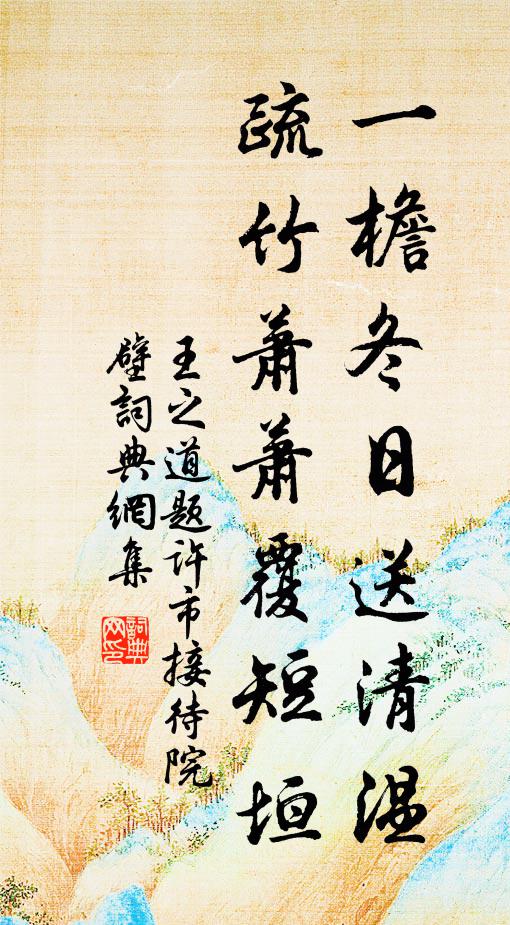 一檐冬日送清温
疏竹萧萧覆短垣
王之道题许市接待院
壁詞典網集
詞典
网印